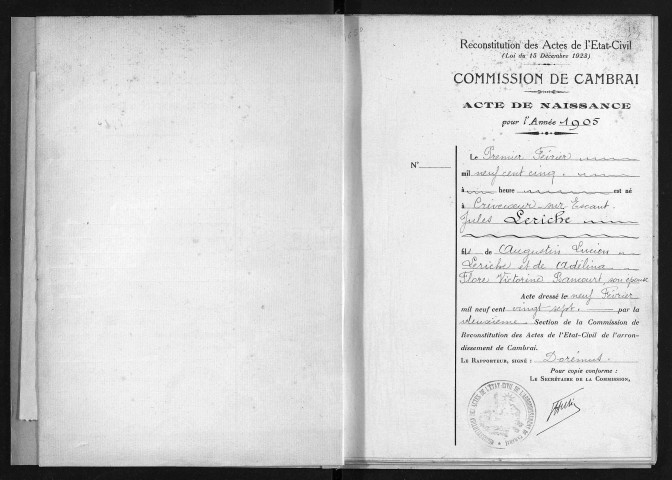 Reconstitution des Actes de l'Etat-Civil
(Loi du 15 Décembre 1923)
COMMISSION DE CAMBRAI
ACTE DE NAISSANCE
pour l'Année 1905
N°
Le Premier Février
mil neuf cent cinq.
à heure est né
à Crèvecoeur sur Escaut.
Jules Leriche
fils de Augustin Lucien
Leriche et de Adélina
Flore Victorine Bancourt son épouse
Acte dressé le neuf Février
mil neuf cent vingt sept. par la
deuxième Section de la Commission de
Reconstitution des Actes de l'Etat-Civil de l'arron-
dissement de Cambrai.
LE RAPPORTEUR, SIGNÉ : Dorémus.
Pour copie conforme :
LE SECRÉTAIRE DE LA COMMISSION,